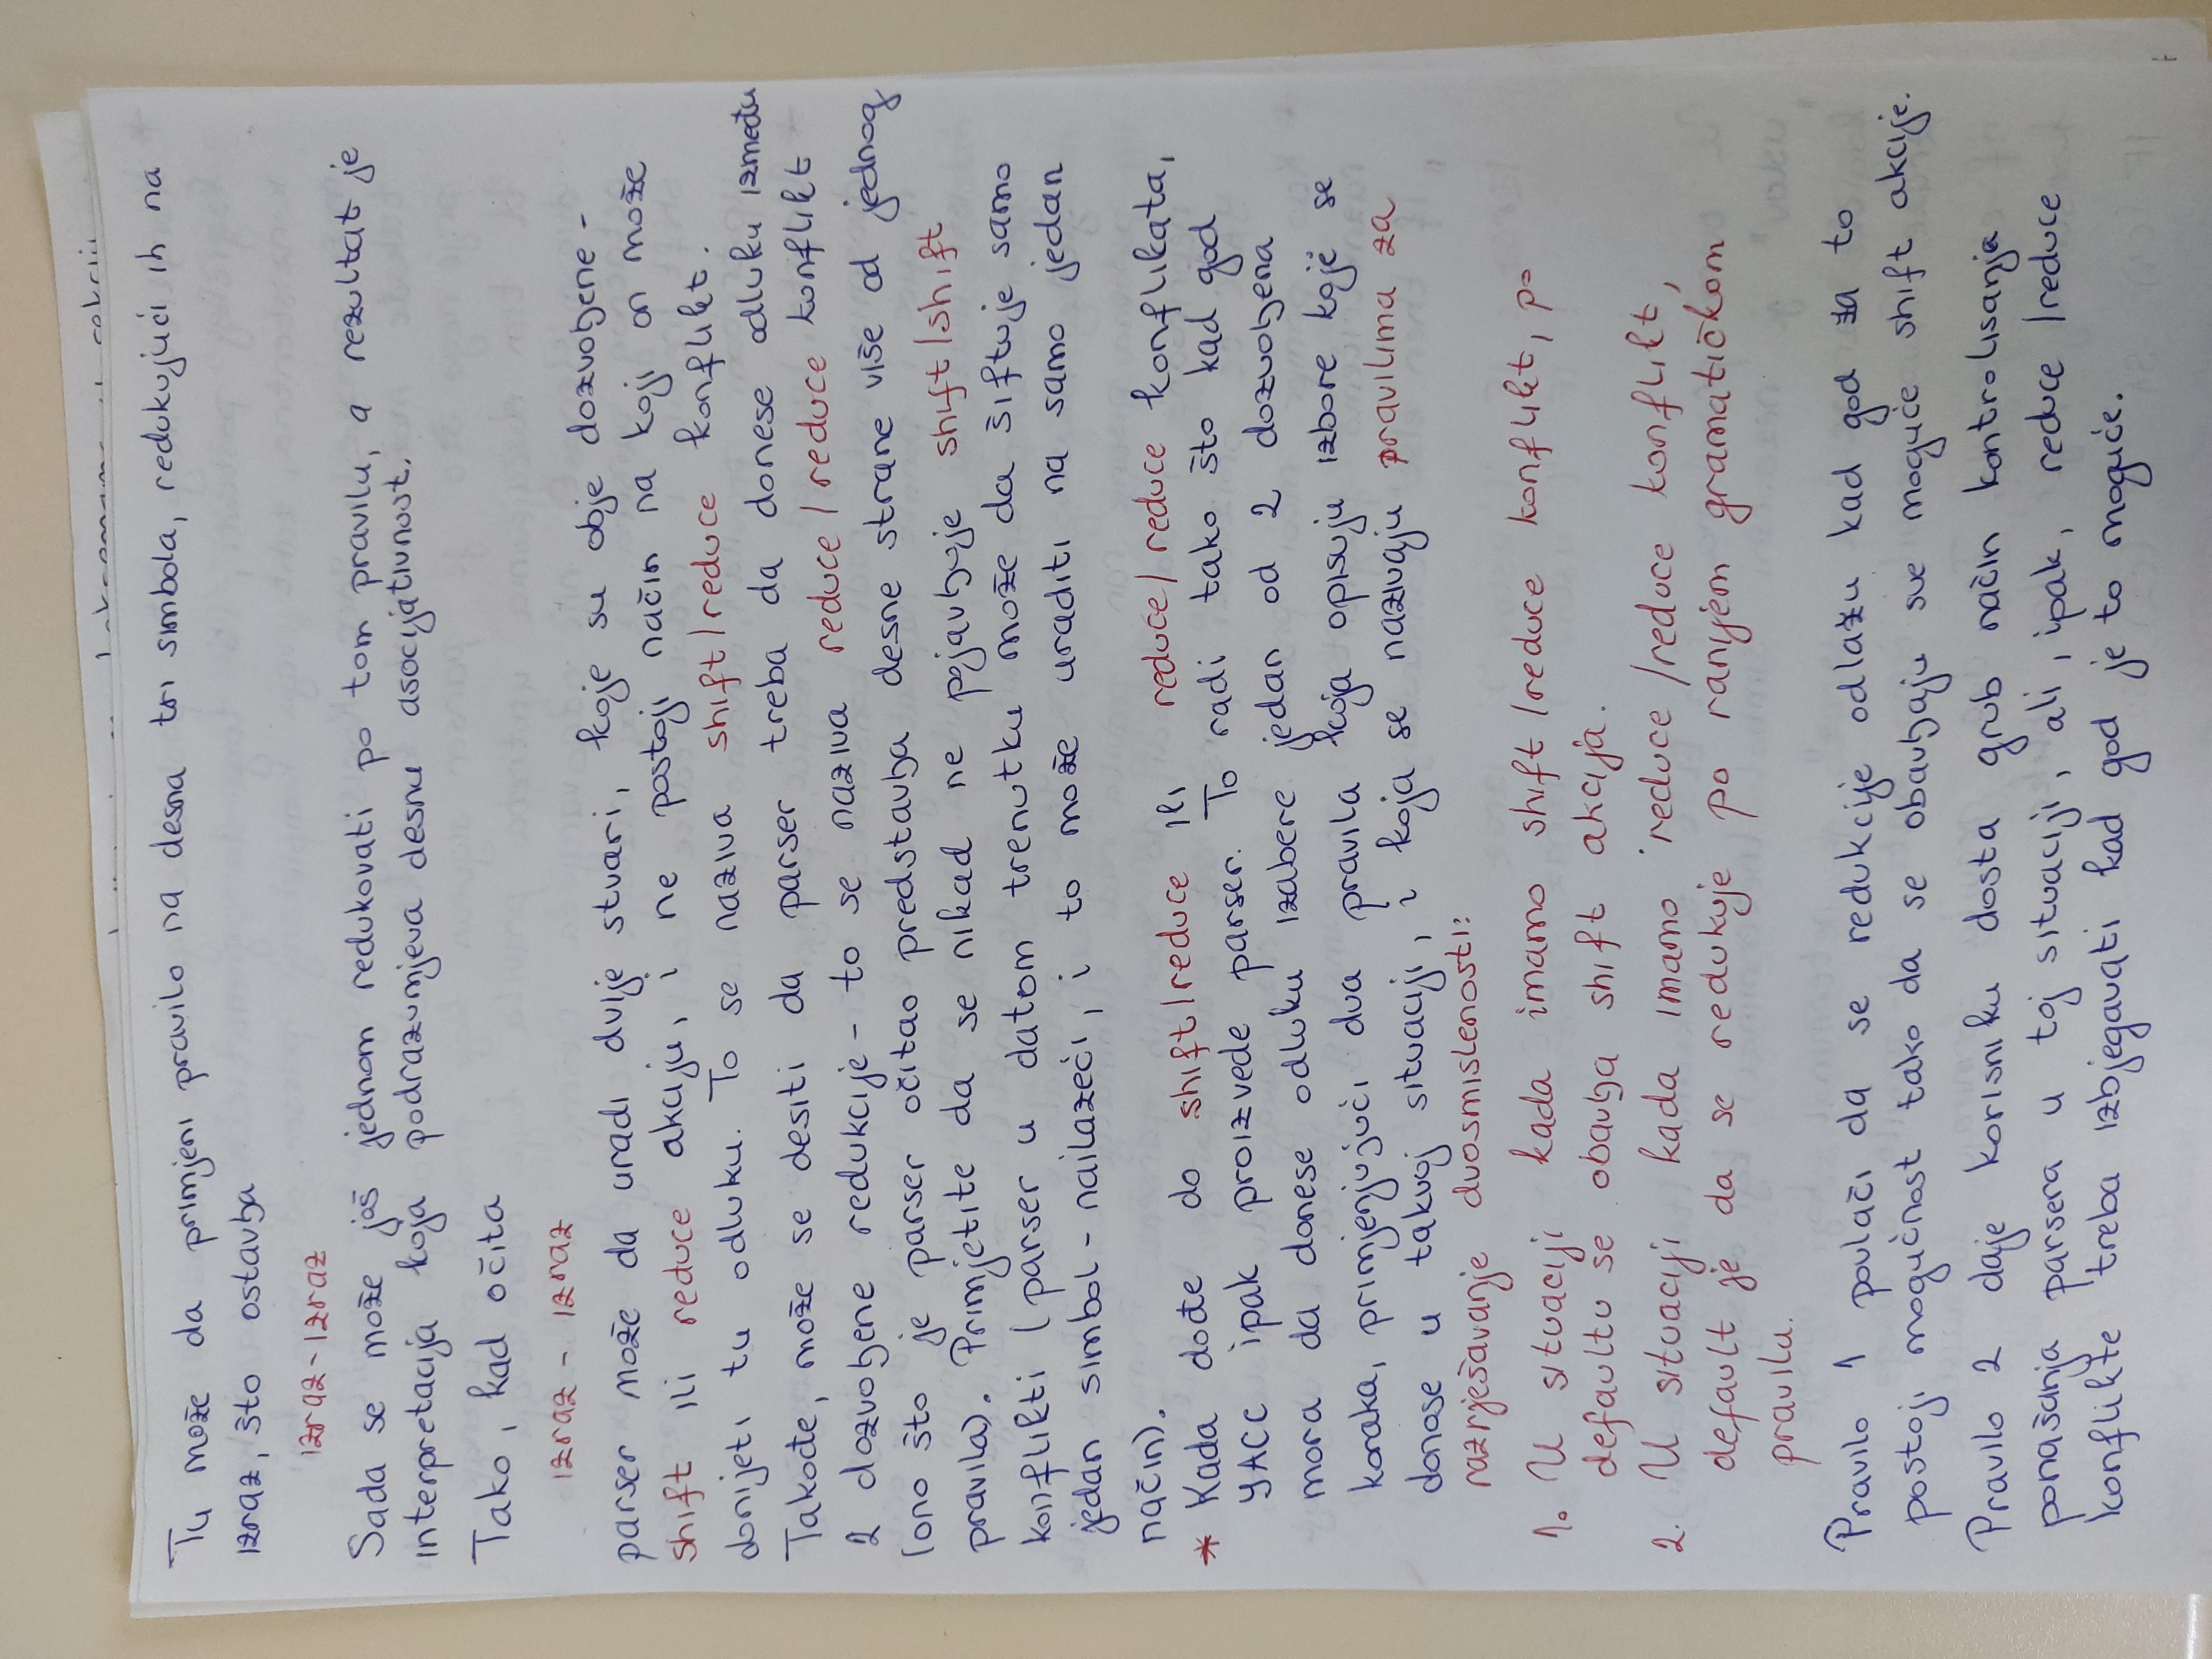 Tu može da primjeni pravilo na desna tri simbola, redukujući ih na
izraz, što ostavlja
izraz-izraz
Sada se može još jednom redukovati po tom pravilu, a rezultat je
interpretacija koja podrazumijeva desnu asocijativnost.
Tako, kad očita
izraz - izraz
parser može da uradi dvije stvari, koje su obje dozvoljene -
shift ili reduce akciju, i ne postoji način na koji on može
donijeti tu odluku. To se naziva shift/reduce konflikt.
Takođe, može se desiti da parser treba da donese odluku između
2 dozvoljene redukcije - to se naziva reduce/reduce konflikt
(ono što je parser očitao predstavlja desne strane više od jednog
pravila). Primjetite da se nikad ne pojavljuje shift/shift
konflikti (parser u datom trenutku može da šiftuje samo
jedan simbol - nailazeći, i to može uraditi na samo jedan
način).
* Kada dođe do shift/reduce ili reduce/reduce konflikata,
YACC ipak proizvede parser. To radi tako što kad god
mora da donese odluku izabere jedan od 2 dozvoljena
koraka, primjenjujući dva pravila koja opisuju izbore koje se
donose u takvoj situaciji, i koja se nazivaju pravilima za
razrješavanje dvosmislenosti:
1. U situaciji kada imamo shift/reduce konflikt, po
defaultu se obavlja shift akcija.
2. U situaciji kada imamo reduce/reduce konflikt,
default je da se redukuje po ranijem gramatičkom
pravilu.
Pravilo 1 povlači da se redukcije odlažu kad god za to
postoji mogućnost tako da se obavljaju sve moguće shift akcije.
Pravilo 2 daje korisniku dosta grub način kontrolisanja
ponašanja parsera u toj situaciji, ali, ipak, reduce/reduce
konflikte treba izbjegavati kad god je to moguće.